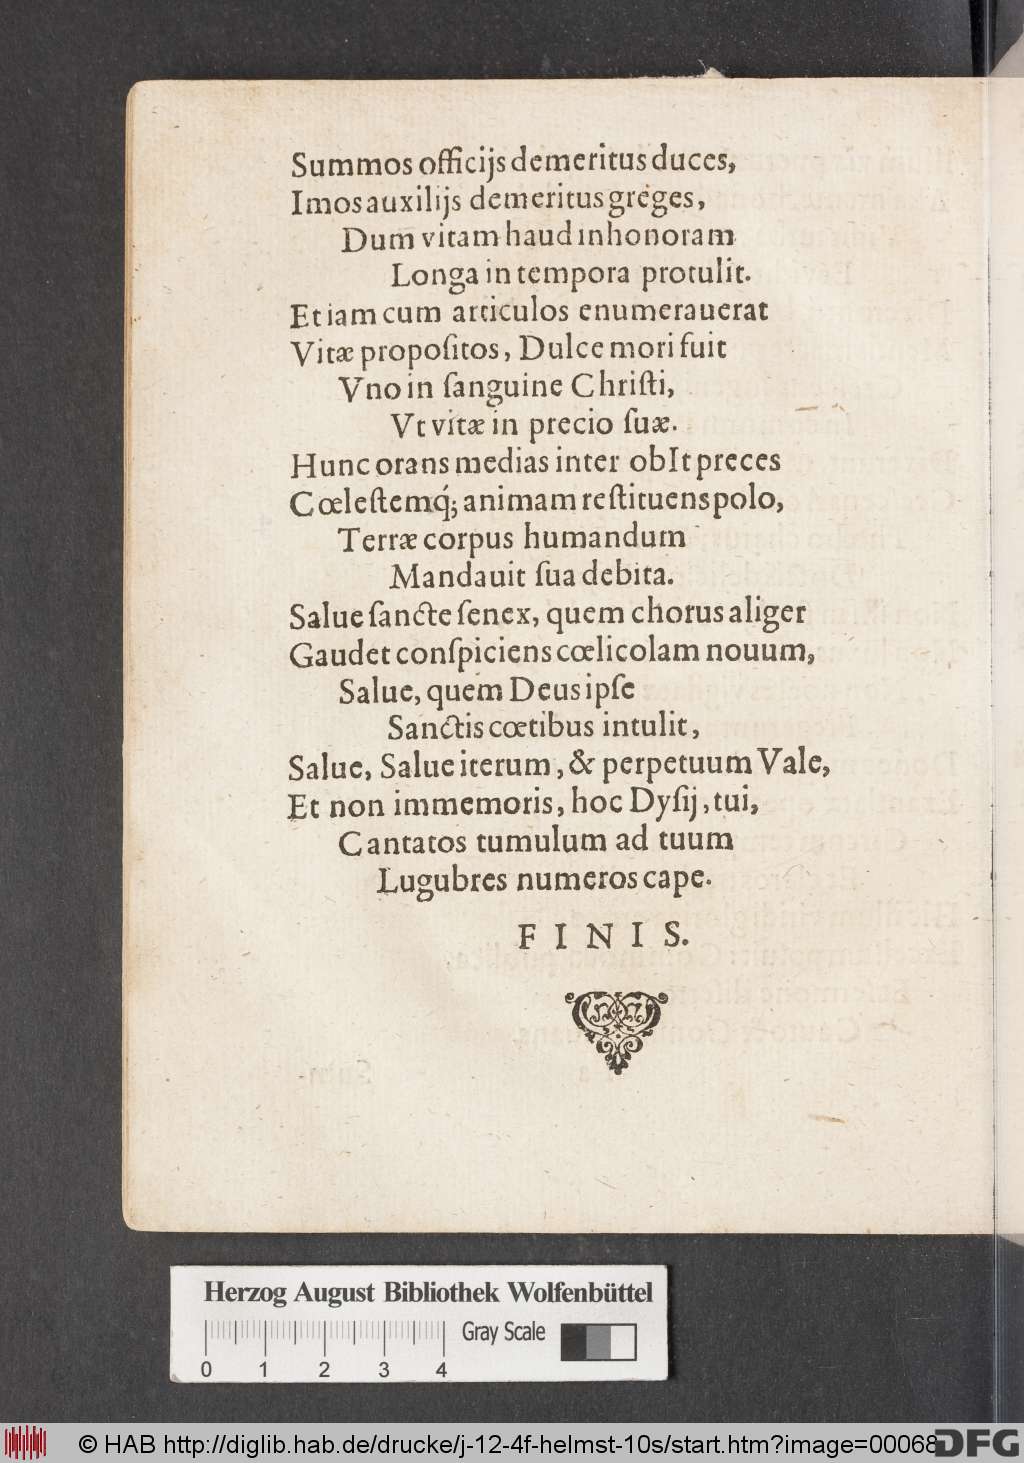 Summos officijs demeritus duces,
Imos auxilijs demeritus greges,
Dum vitam haud inhonoram
Longa in tempora protulit.
Etiam cum articulos enumerauerat
Vitæ propoſitos, Dulce mori fuit
Vno in ſanguine Chriſti,
Vt vitæ in precio ſuæ.
Hunc orans medias inter obIt preces
Cœleſtemq́; animam reſtituens polo,
Terræ corpus humandum
Mandauit ſua debita.
Salue ſancte ſenex, quem chorus aliger
Gaudet conſpiciens cœlicolam nouum,
Salue, quem Deus ipſe
Sanctis cœtibus intulit,
Salue, Salue iterum, & perpetuum Vale,
Et non immemoris, hoc Dyſij, tui,
Cantatos tumulum ad tuum
Lugubres numeros cape.
FINIS.
Herzog August Bibliothek Wolfenbüttel
Gray Scale
0 1 2 3 4
© HAB http://diglib.hab.de/drucke/j-12-4f-helmst-10s/start.htm?image=00068
DFG